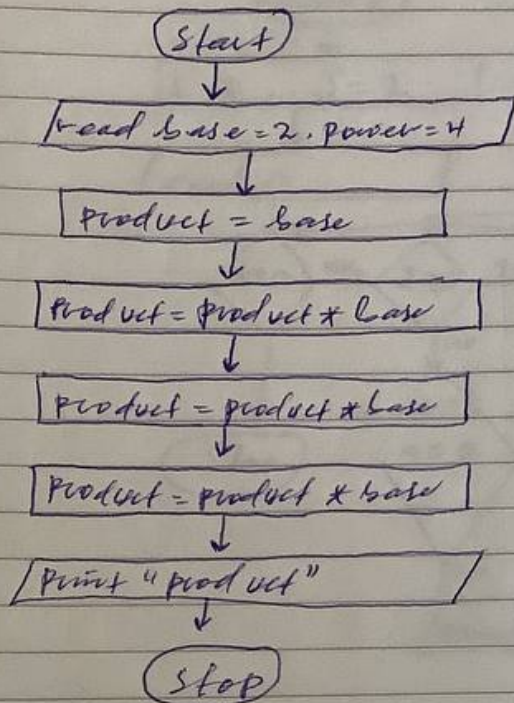 Start
read base=2. power=4
product = base
product = product * base
product = product * base
product = product * base
print "product"
Stop